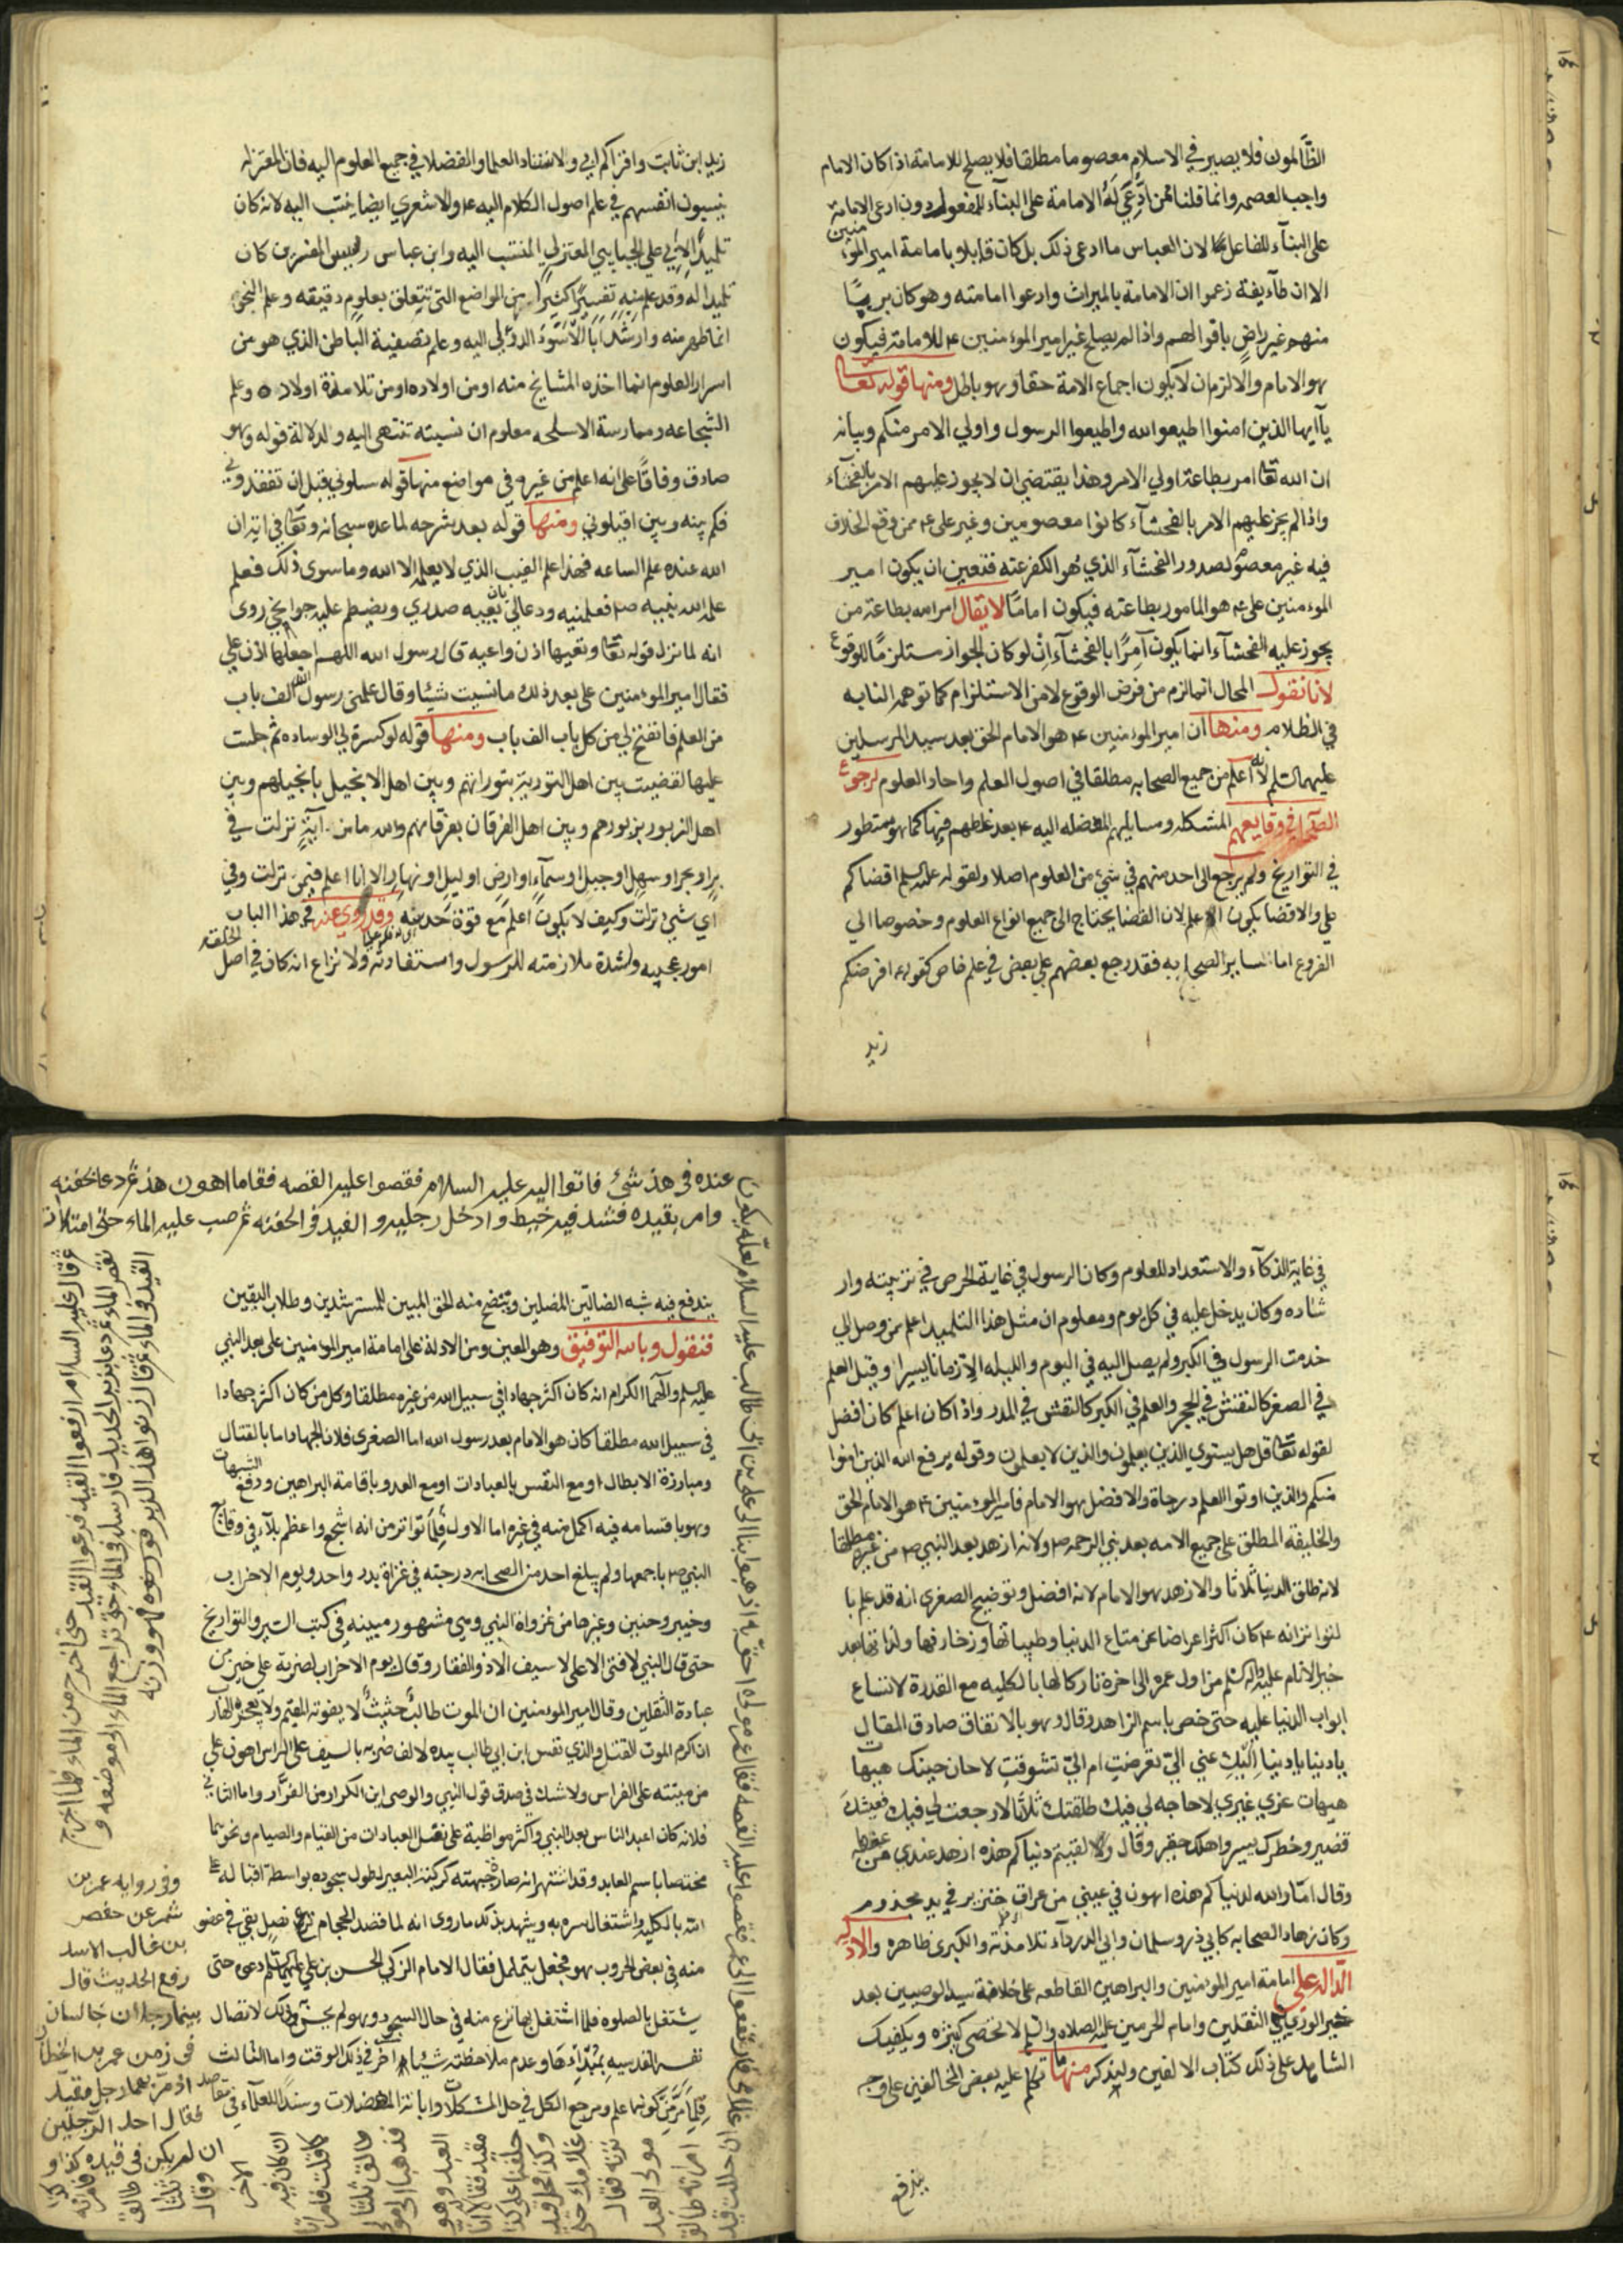 الظالمون فلا يصير في الاسلام معصوما مطلقا فلا يصلح للامامة اذا كان الامام
واجب العصمه وانما قلنا ممن ادُّعى لَهُ الامامة على البنآء للمفعول دون ادعى الامامة
على البنآء للفاعل لان العباس ما ادعى ذلك بل كان قايلا بامامة امير المؤمنين
الا ان طآيفة زعموا ان الامامة بالميراث وادعوا امامته وهو كان بريئًا
منهم غير راضٍ باقوالهم واذا لم يصلح غير امير المؤمنين ع للامامة فيكون
هو الامام والا لزم ان لا يكون اجماع الامة حقا وهو باطل ومنها قوله تعالى
يآ ايها الذين امنوا اطيعوا الله واطيعوا الرسول واولي الامر منكم وبيانه
ان الله تعا امر بطاعة اولي الامر وهذا يقتضي ان لا يجوز عليهم الامر بالفحشآء
واذا لم يجز عليهم الامر بالفحشآء كانوا معصومين وغير على ع ممن وقع الخلاف
فيه غير معصوم لصدور الفحشآء الذي هُو الكفر عنه فتعين ان يكون امير
المؤمنين على ع هو المامور بطاعته فيكون امامًا لا يقال امر الله بطاعة من
يجوز عليه الفحشآء انما يكون آمِرًا بالفحشآء انْ لو كان الجواز مستلزمًا للوقوع
لانا نقول المحال انما لزم من فرض الوقوع لا من الاستلزام كما توهمه النابه
في الظلام ومنها ان امير المؤمنين ع هو الامام الحق بعد سيد المرسلين
عليهما السلم لانه اعلم من جميع الصحابه مطلقا في اصول العلم واحاد العلوم لرجوع
الصحابه في وقايعهم المشكله ومسايلهم المعضله اليه ع بعد غلطهم فيها كما هو مسطور
في التواريخ ولم يراجع الى احد منهم في شيء من العلوم اصلا ولقوله عليه السلم اقضاكم
على والاقضا يكون اعلم لان القضا يحتاج الى جميع انواع العلوم وخصوصا الى
الفروع اما لساير الصحابه فقد رجع بعضهم على بعض في علم خاص كقوله ع افرضكم
زيد
زيد ابن ثابت واقراكم ابي والاستناد العلما والفضلا في جميع العلوم اليه فان المعتزله
ينسبون انفسهم في علم اصول الكلام اليه ع والاشعري ايضا ينتسب اليه لانه كان
تلميذًا لابي علي الجبايي المعتزلي المنتسب اليه وابن عباس رييس المفسرين كان
تلميذا له وقد علم منه تفسيرًا كثيرًا من المواضع التي تتعلق بعلوم دقيقه وعلم النحو
انما ظهر منه وارشد ابا الاسود الدؤلي اليه وعلم تصفية الباطن الذي هو من
اسرار العلوم انما اخذه المشايخ منه او من اولاده او من تلامذة اولاده وعلم
الشجاعه وممارسة الاسلحه معلوم ان نسبته تنتهى اليه ولدلالة قوله وهو
صادق وفاقًا على انه اعلم من غيره في مواضع منها قوله سلوني قبل ان تفقدوني
فكم بينه وبين اقيلوني ومنها قوله بعد شرحه لما عده سبحانه وتعا في اية ان
الله عنده علم الساعه فهذا علم الغيب الذي لا يعلمه الا الله وما سوى ذلك فعلم
علمه الله نبيه ص فعلمنيه ودعا لي بان يعيه صدري ويضطم عليه جوانحي روى
انه لما نزل قوله تعا وتعيها اذن واعيه قال رسول الله اللهم اجعلها اذن علي
فقال امير المؤمنين على بعد ذلك ما نسيت شيئا وقال علمنى رسول الله الف باب
من العلم فانفتح لي من كل باب الف باب ومنها قوله لو كسرت لي الوساده ثم جلست
عليها لقضيت بين اهل التورية بتوراتهم وبين اهل الانجيل بانجيلهم وبين
اهل الزبور بزبورهم وبين اهل الفرقان بفرقانهم والله ما من آيةٍ نزلت في
برٍ او بحر او سهل او جبل او سمآءٍ او ارض او ليل او نهار الا انا اعلم فيمن نزلت وفي
اي شيء نزلت وكيف لا يكون اعلم مع قوة حدسه وقد روي عنه في هذا الباب
امور عجيبه ولشدة ملازمته للرسول واستفادته ولا نزاع انه كان في اصل الخلقة
في غاية الذكآء والاستعداد للعلوم وكان الرسول في غاية الحرص في تربيته وار
شاده وكان يدخل عليه في كل يوم ومعلوم ان مثل هذا التلميد اعلم ممن وصل الى
خدمت الرسول في الكبر ولم يصل اليه في اليوم والليله الا زمانا يسيرا وقيل العلم
في الصغر كالنقش في الحجر والعلم في الكبر كالنقش في المدر واذا كان اعلم كان افضل
لقوله تعا قل هل يستوي الذين يعلمون والذين لا يعلمون وقوله يرفع الله الذين امنوا
منكم والذين اوتوا العلم درجاة والافضل هو الامام فامير المؤمنين ع هو الامام الحق
والخليفة المطلق على جميع الامه بعد نبي الرحمه ص ولانه ازهد بعد النبي ص من غيره مطلقا
لانه طلق الدنيا ثلاثا والازهد هو الامام لانه افضل وتوضيح الصغرى انه قد علم با
لتواتر انه ع كان اكثر اعراضا عن متاع الدنيا وطيباتها وزخارفها ولذاتها بعد
خير الانام عليه واله السلم من اول عمره الى اخره تاركا لها بالكليه مع القدرة لاتساع
ابواب الدنيا عليه حتى خص باسم الزاهد وقال وهو بالاتفاق صادق المقال
يا دنيا يا دنيا اليكِ عني اليّ تعرضتِ ام اليّ تشوقتِ لا حان حينك هيهات
هيهات غري غيري لا حاجه لي فيك طلقتك ثلاثا لا رجعت لي فيك فعيشك
قصير وخطرك يسير واملك حقير وقال لالفيتم دنياكم هذه ازهد عندي من عفطه
وقال امّا والله لدنياكم هذه اهون في عيني من عراق خنزير في يد مجذوم
وكان زهاد الصحابه كابي ذر وسلمان وابي الدردآء تلامذته والكبرى ظاهره والادله
الداله على امامة امير المؤمنين والبراهين القاطعه على خلافة سيد الوصيين بعد
خير الورى الثقلين وامام الحرمين عليه الصلاه والسلم لا تحصى كثره ويكفيك
الشاهد على ذلك كتاب الالفين ولنذكر منها ما تكلم عليه بعض المخالفين على وجه
يندفع
عنده في هذ شئ فاتوا اليه عليه السلام فقصوا عليه القصه فقاما اهون هذ ثم دعا بجفنه
وامر بقيده فشد فيه خيط وادخل رجليه والقيد في الجفنه ثم صب عليه الماء حتى امتلات
يندفع فيه شبه الضالين المضلين ويتضح منه الحق المبين للمسترشدين وطلاب اليقين
فنقول وبالله التوفيق وهو المعين ومن الادلة على امامة امير المؤمنين على بعد النبي
عليه السلم وآلهما الكرام انه كان اكثر جهادا في سبيل الله من غيره مطلقا وكل من كان اكثر جهادا
في سبيل الله مطلقا كان هو الامام بعد رسول الله اما الصغرى فلان الجهاد اما بالقتال
ومبارزة الابطال او مع النفس بالعبادات او مع العدو باقامة البراهين ودفع الشبهات
وهو باقسامه فيه اكمل منه في غيره اما الاول فلِمَا تواتر من انه اشجع واعظم بلآء في وقايع
النبي ص باجمعها ولم يبلغ احد من الصحابه درجته في غزاة بدر واحد ويوم الاحزاب
وخيبر وحنين وغيرها من غزواة النبي وهي مشهوره مبينه في كتب السير والتواريخ
حتى قال النبي لا فتى الا على لا سيف الا ذو الفقار وقال يوم الاحزاب لضربة علي خير من
عبادة الثقلين وقال امير المؤمنين ان الموت طالبٌ حثيثٌ لا يفوته المقيم ولا يعجزه الهارب
ان اكرم الموت القتل والذي نفس ابن ابي طالب بيده لالف ضربه بالسيف على الراس اهون علي
من ميتته على الفراس ولا شك في صدق قول النبي والوصي اين الكرار من الفرّار واما الثاني
فلانه كان اعبد الناس بعد النبي واكثر مواظبة على نفس العبادات من القيام والصيام ونحوهما
مختصا باسم العابد وقد اشتهر انه صارة جبهته كركبة البعير لطول سجوده بواسطة اقباله على
الله بالكليه واشتغال سره به ويشهد بذلك ما روى انه لما قصد الحجام نزع نصل بقي في عضو
منه في بعض الحروب وهو فجعل يتململ فقال الامام الزكي الحسن بن علي عليهما السلم دعوه حتى
يشتغل بالصلوه فلما اشتغل بها نزع منه في حال السجود وهو لم يحس بذلك لاتصال
نفسه القدسيه بمُبْدِأها وعدم ملاحظته شيئا اخر في ذلك الوقت واما الثالث
فلِمَا مَرَّ مِنْ كونه اعلم ومرجع الكل في حل المشكلات وابانة المعضلات وسندًا للعلمآء في
القيد في الماء ثم قال زنوا هذا
ثم قال عليه السلام ارفعوا القيد فرفعوا القيد حتى اخرج من الماء فلما اخرج
نقص الماء ثم دعا بزبر الحديد فارسله في الماء حتى تراجع الماء الى موضعه و
وفي روايه عمر بن
شمر عن حفص
بن غالب الاسد
رفع الحديث قال
بينما رجلان جالسان
فى زمن عمر بن الخطاب
اذ مر بهما رجل مقيد
فقال احد الرجلين
ان لم يكن فى قيده كذا و
كذا فامراته
طالق
ثلثا
وقال
الاخر
ان كان فيه
كما قلت فامراته
طالق ثلثا
فذهبا الى مولى
العبد